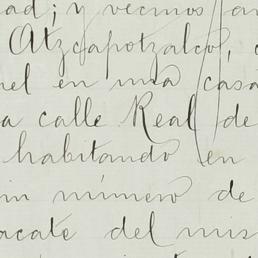 ad; y vecinos
Atzcapotzalco,
el en una casa
a calle Real de
habitando en
in número de
acate del mis